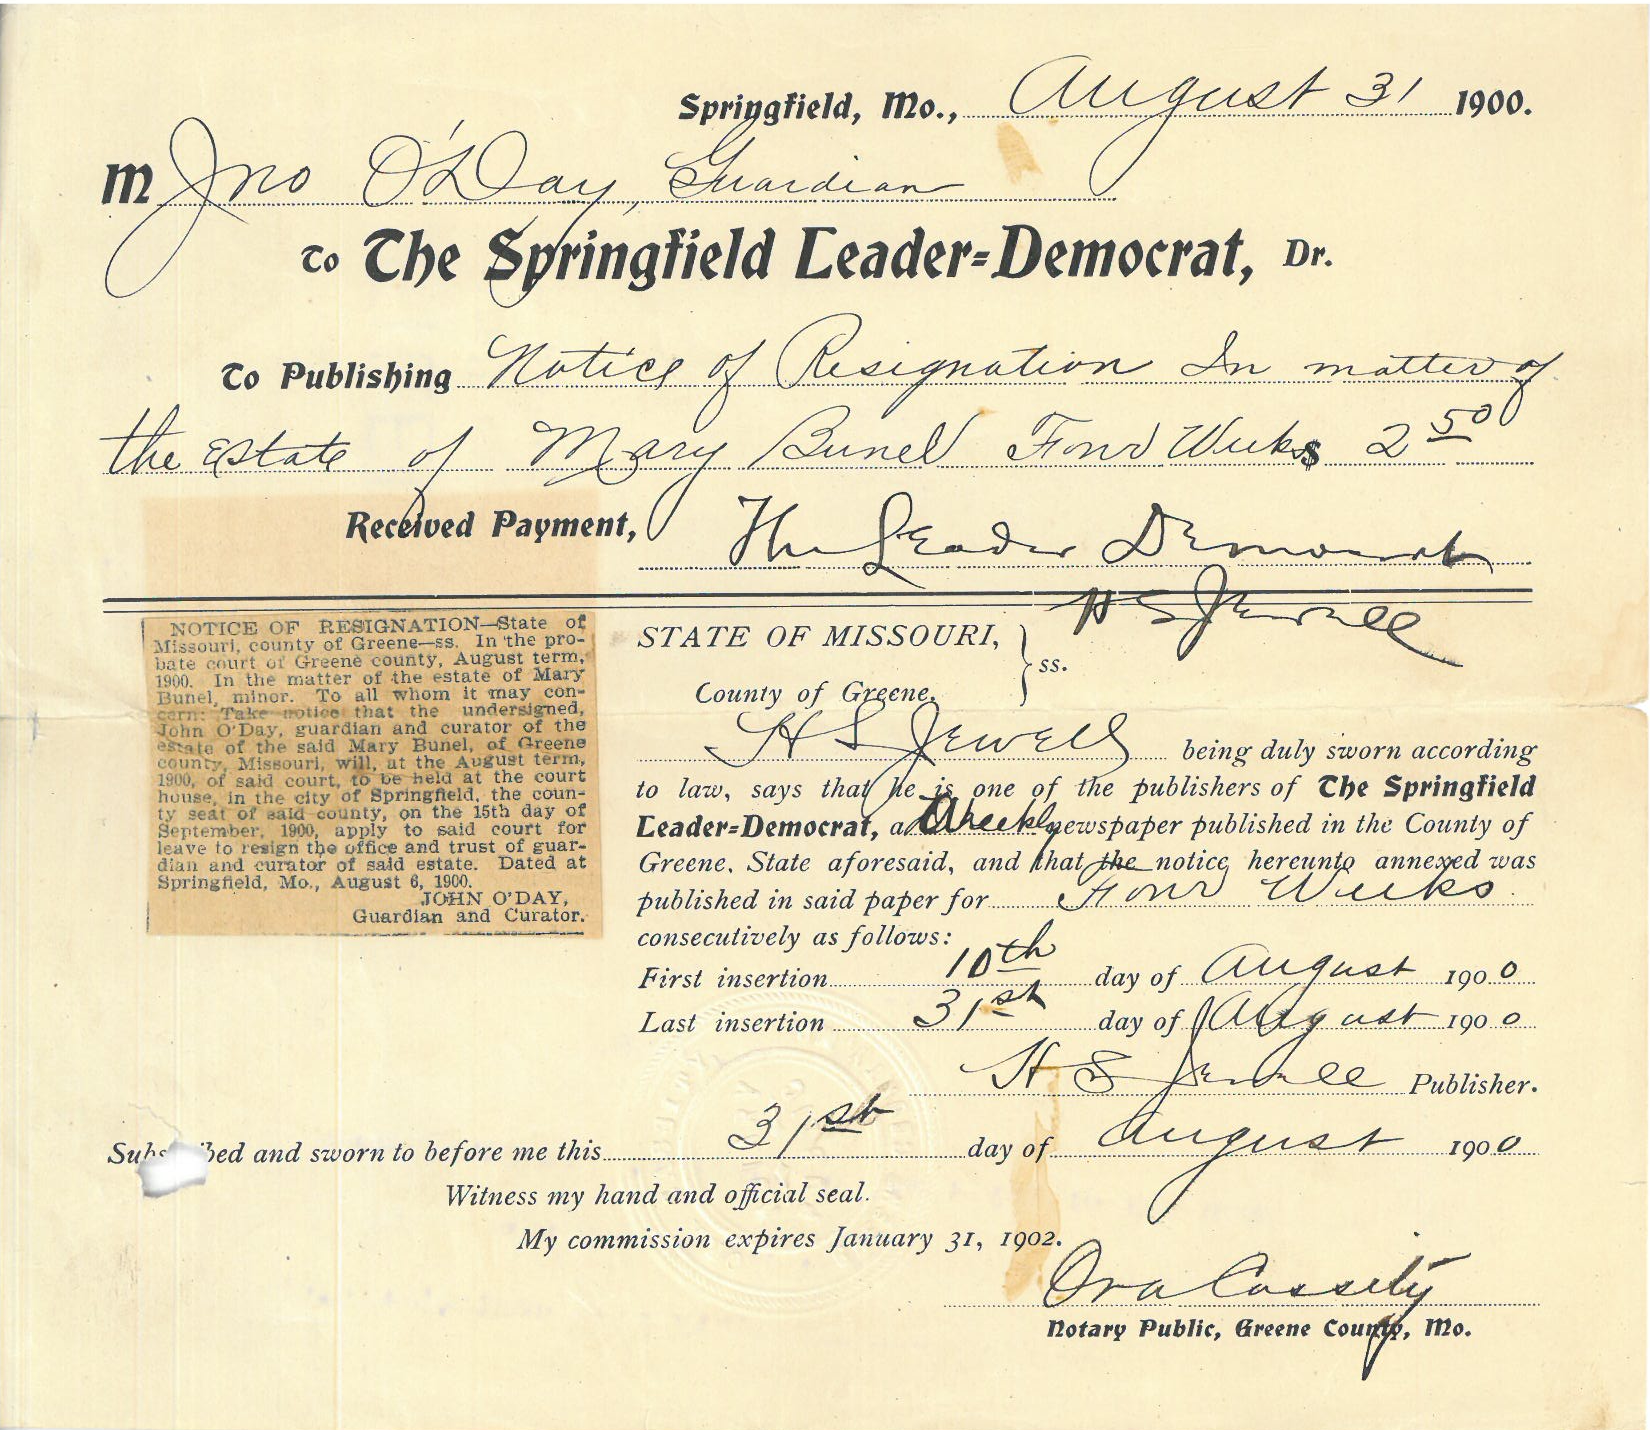 Springfield, Mo., August 31 1900.
M Jno O'Day, Guardian
To The Springfield Leader=Democrat, Dr.
To Publishing Notice of Resignation In matter of
the Estate of Mary Bunel Four Weeks $ 2 50
Received Payment, The Leader Democrat
H S Jewell
NOTICE OF RESIGNATION—State of
Missouri, county of Greene—ss. In the pro-
bate court of Greene county, August term,
1900. In the matter of the estate of Mary
Bunel, minor. To all whom it may con-
cern: Take notice that the undersigned,
John O'Day, guardian and curator of the
estate of the said Mary Bunel, of Greene
county, Missouri, will, at the August term,
1900, of said court, to be held at the court
house, in the city of Springfield, the coun-
ty seat of said county, on the 15th day of
September, 1900, apply to said court for
leave to resign the office and trust of guar-
dian and curator of said estate. Dated at
Springfield, Mo., August 6, 1900.
JOHN O'DAY,
Guardian and Curator.
STATE OF MISSOURI, } ss.
County of Greene.
H S Jewell being duly sworn according
to law, says that he is one of the publishers of The Springfield
Leader=Democrat, a Weekly newspaper published in the County of
Greene, State aforesaid, and that the notice hereunto annexed was
published in said paper for Four Weeks
consecutively as follows:
First insertion 10th day of August 1900
Last insertion 31st day of August 1900
H S Jewell Publisher.
Subscribed and sworn to before me this 31st day of August 1900
Witness my hand and official seal.
My commission expires January 31, 1902.
Ora Cassity
Notary Public, Greene County, Mo.